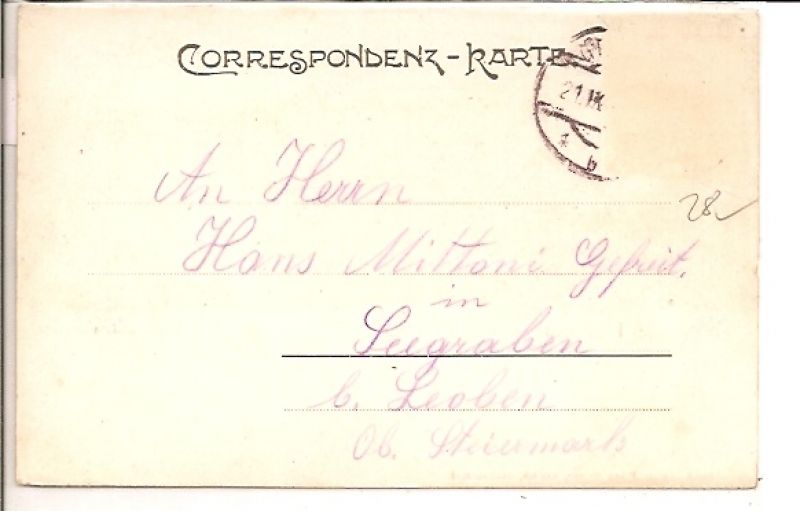 CORRESPONDENZ-KARTE
21.IX
b
An Herrn
28
Hans Mittoni Gefreit.
in
Seegraben
b. Leoben
Ob. Steiermark